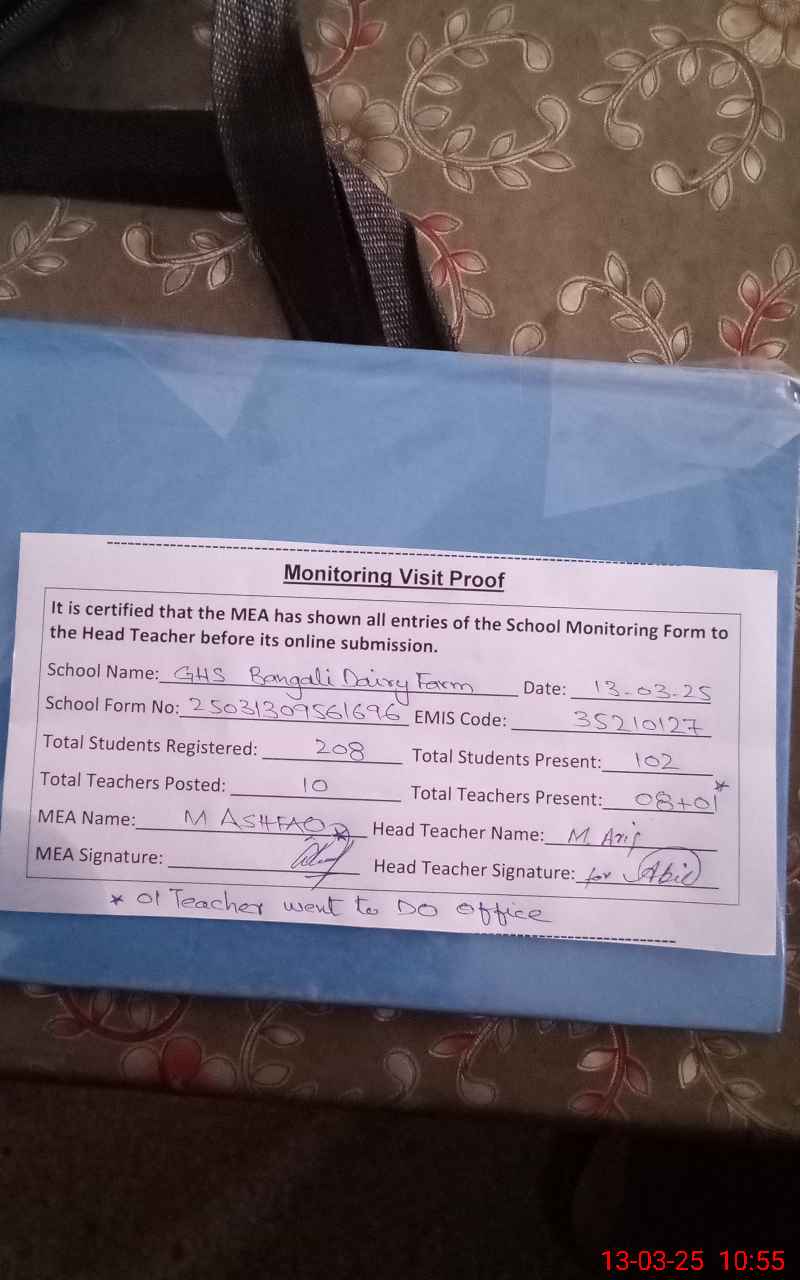 Monitoring Visit Proof
It is certified that the MEA has shown all entries of the School Monitoring Form to
the Head Teacher before its online submission.
School Name: GHS Bangali Dairy Farm Date: 13-03-25
School Form No: 25031309561696 EMIS Code: 35210127
Total Students Registered: 208 Total Students Present: 102
Total Teachers Posted: 10 Total Teachers Present: 08+01*
MEA Name: M ASHFAQ Head Teacher Name: M. Arif
MEA Signature: Head Teacher Signature: for
* 01 Teacher went to DO office
13-03-25 10:55